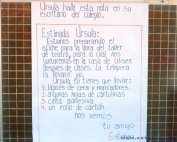 Úrsula halla esta nota en su
escritorio del colegio.
Estimada Úrsula:
Estamos preparando el
afiche para la obra del taller
de teatro, para lo cual nos
juntaremos en la casa de Ulises
después de clases. La témpera
la llevaré yo.
Úrsula, tú tienes que llevar:
1. lápices de cera y marcadores.
2. algunas hojas de cartulinas
3. cinta adhesiva
4. un rollo de cartón.
nos vemos
tu amigo